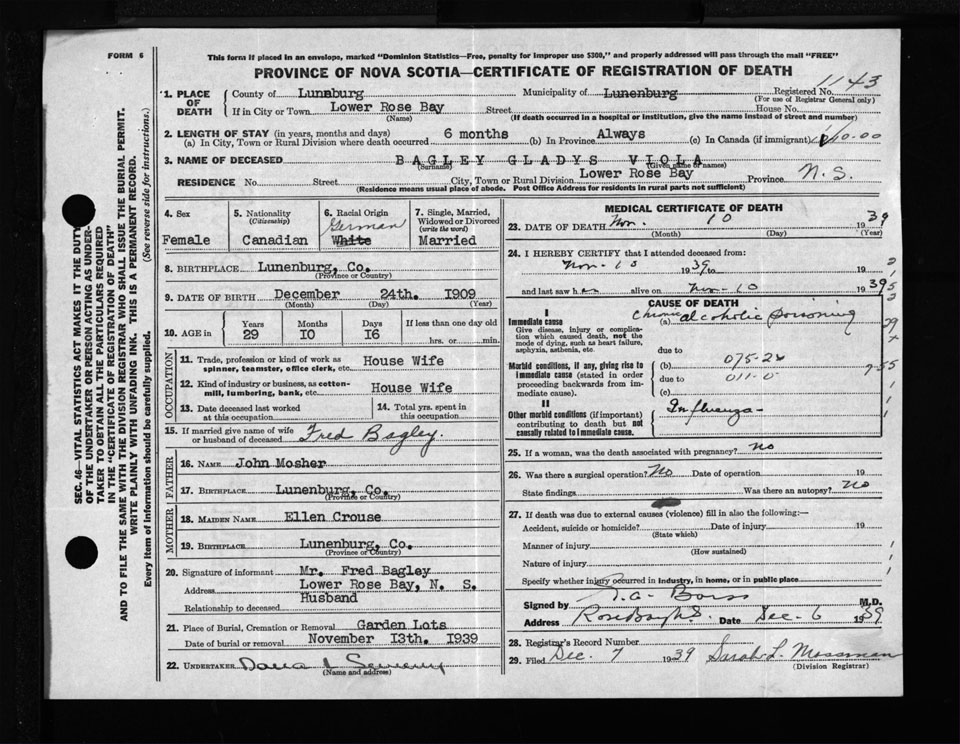 FORM 6
This form if placed in an envelope, marked "Dominion Statistics—Free, penalty for improper use $300," and properly addressed will pass through the mail "FREE"
PROVINCE OF NOVA SCOTIA—CERTIFICATE OF REGISTRATION OF DEATH
1143
1. PLACE OF DEATH
County of Lunnburg Municipality of Lunenburg Registered No.
(For use of Registrar General only)
If in City or Town Lower Rose Bay Street House No.
(Name) (If death occurred in a hospital or institution, give the name instead of street and number)
2. LENGTH OF STAY (in years, months and days) 6 months Always
(a) In City, Town or Rural Division where death occurred (b) In Province (c) In Canada (if immigrant)
3. NAME OF DECEASED BAGLEY GLADYS VIOLA
(Surname) (Given name or names)
RESIDENCE No. Street City, Town or Rural Division Lower Rose Bay Province N. S.
(Residence means usual place of abode. Post Office Address for residents in rural parts not sufficient)
4. Sex
Female
5. Nationality
(Citizenship)
Canadian
6. Racial Origin
German
White
7. Single, Married, Widowed or Divorced
(write the word)
Married
8. BIRTHPLACE Lunenburg, Co.
(Province or Country)
9. DATE OF BIRTH December 24th. 1909
(Month) (Day) (Year)
10. AGE in
Years Months Days If less than one day old
29 10 16 hrs. or min.
OCCUPATION
11. Trade, profession or kind of work as spinner, teamster, office clerk, etc. House Wife
12. Kind of industry or business, as cotton-mill, lumbering, bank, etc. House Wife
13. Date deceased last worked at this occupation
14. Total yrs. spent in this occupation
15. If married give name of wife or husband of deceased Fred Bagley.
FATHER
16. NAME John Mosher
17. BIRTHPLACE Lunenburg, Co.
(Province or Country)
MOTHER
18. MAIDEN NAME Ellen Crouse
19. BIRTHPLACE Lunenburg, Co.
(Province or Country)
20. Signature of informant Mr. Fred Bagley
Address Lower Rose Bay, N. S.
Relationship to deceased Husband
21. Place of Burial, Cremation or Removal Garden Lots
Date of burial or removal November 13th. 1939
22. UNDERTAKER
(Name and address)
MEDICAL CERTIFICATE OF DEATH
23. DATE OF DEATH Nov. 10 1939
(Month) (Day) (Year)
24. I HEREBY CERTIFY that I attended deceased from:
Nov-10 1939 to 19
and last saw her alive on Nov-10 1939
CAUSE OF DEATH
I
Immediate cause (a) Chronic alcoholic poisoning
Give disease, injury or complication which caused death, not the mode of dying, such as heart failure, asphyxia, asthenia, etc.
due to
Morbid conditions, if any, giving rise to immediate cause (stated in order proceeding backwards from immediate cause).
(b)
due to
(c)
II
Other morbid conditions (if important) contributing to death but not causally related to immediate cause.
Influenza-
25. If a woman, was the death associated with pregnancy? no
26. Was there a surgical operation? No Date of operation 19
State findings Was there an autopsy? no
27. If death was due to external causes (violence) fill in also the following:—
Accident, suicide or homicide? Date of injury 19
(State which)
Manner of injury
(How sustained)
Nature of injury
Specify whether injury occurred in industry, in home, or in public place
Signed by M.D.
Address Date Dec-6 1939
28. Registrar's Record Number
29. Filed Dec. 7 1939 Sarah L. Mossman
(Division Registrar)
SEC. 46—VITAL STATISTICS ACT MAKES IT THE DUTY
OF THE UNDERTAKER OR PERSON ACTING AS UNDER-
TAKER TO OBTAIN ALL THE PARTICULARS REQUIRED
IN THE "CERTIFICATE OF REGISTRATION OF DEATH"
AND TO FILE THE SAME WITH THE DIVISION REGISTRAR WHO SHALL ISSUE THE BURIAL PERMIT.
WRITE PLAINLY WITH UNFADING INK. THIS IS A PERMANENT RECORD.
Every item of information should be carefully supplied. (See reverse side for instructions.)